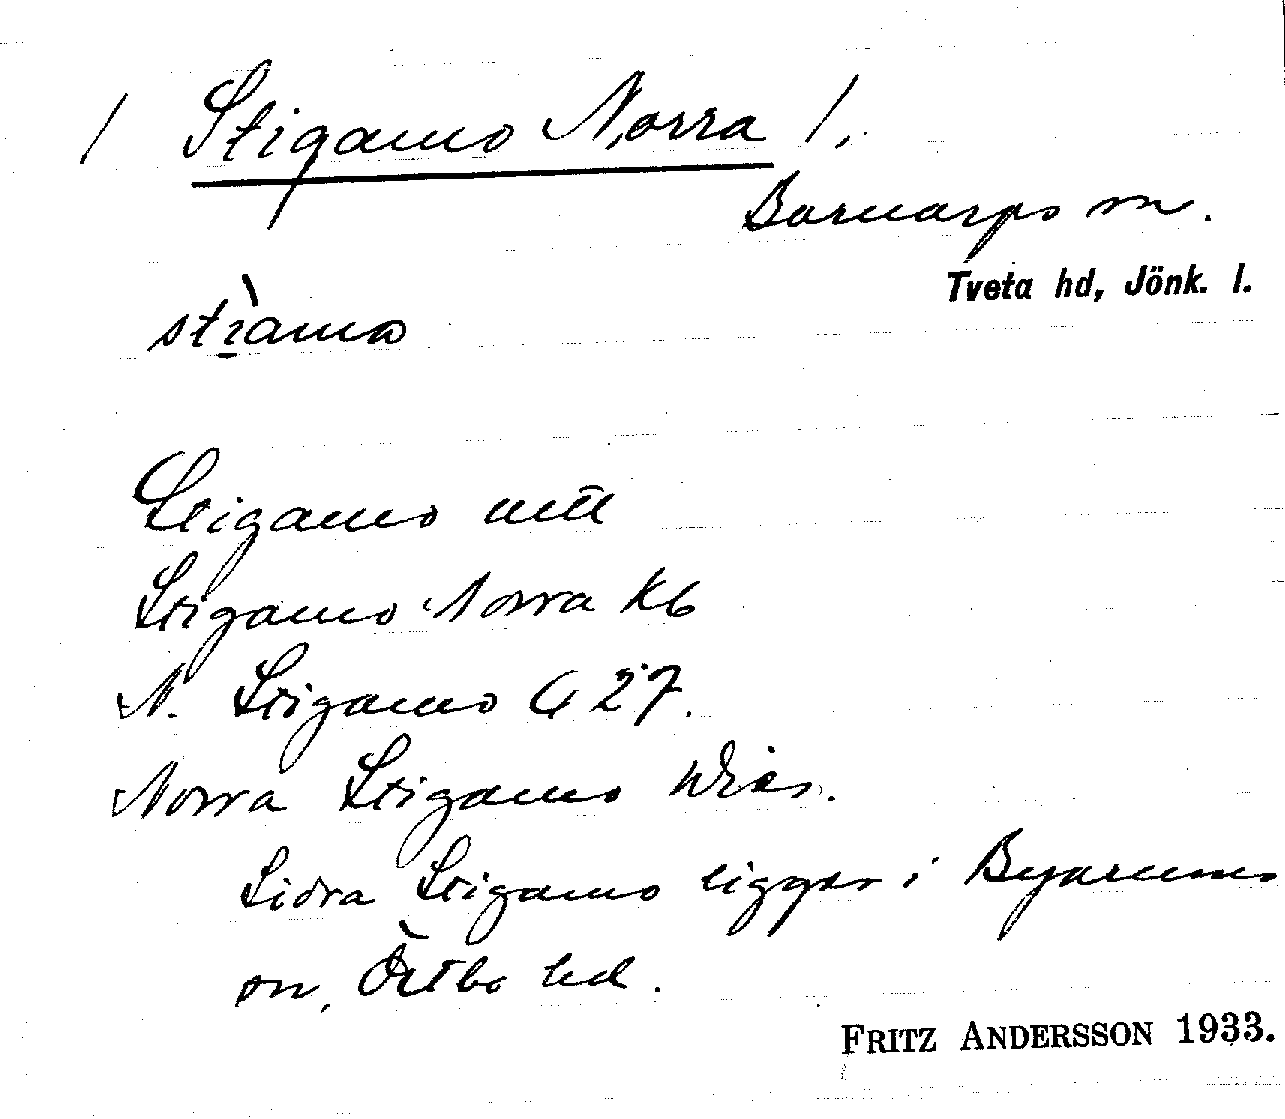 / Stigamo Norra /.
Barnarps sn.
Tveta hd, Jönk. l.
stìama
Stigamo
Stigamo Norra Kb
N. Stigamo G 27.
Norra Stigamo
Södra Stigamo ligger i Byarums
sn, Östbo hd.
FRITZ ANDERSSON 1933.